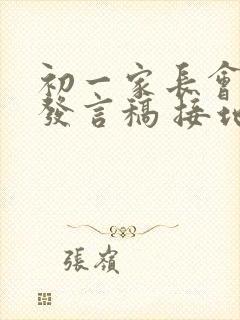 初一家長會
發言稿 接地
張嶺